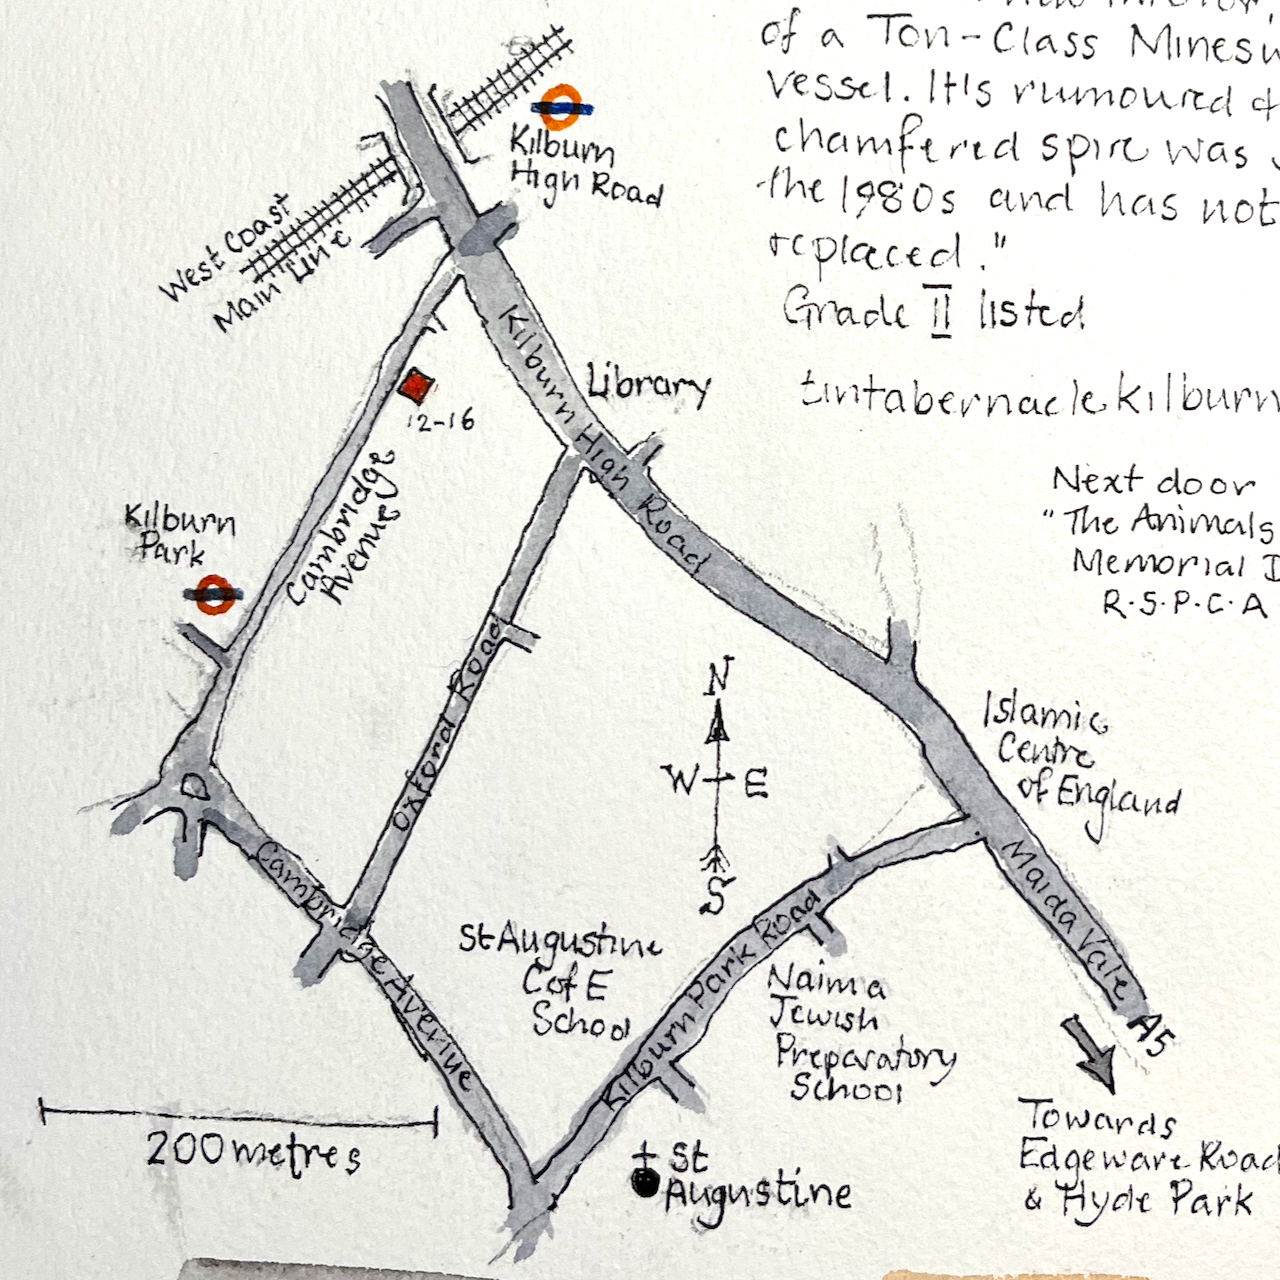 of a Ton-Class
vessel. It's rumoured
chamfered spire was
the 1980s and has not
replaced."
Grade II listed
tintabernacle.kilburn
Next door
"The Animals
Memorial
R.S.P.C.A
Kilburn
High Road
West Coast
Main Line
Kilburn High Road
Library
12-16
Cambridge
Avenue
Kilburn
Park
Oxford Road
N
W E
S
Islamic
Centre
of England
Cambridge Avenue
St Augustine
C of E
School
Kilburn Park Road
Naima
Jewish
Preparatory
School
Maida Vale
A5
Towards
Edgeware Road
& Hyde Park
200 metres
St
Augustine